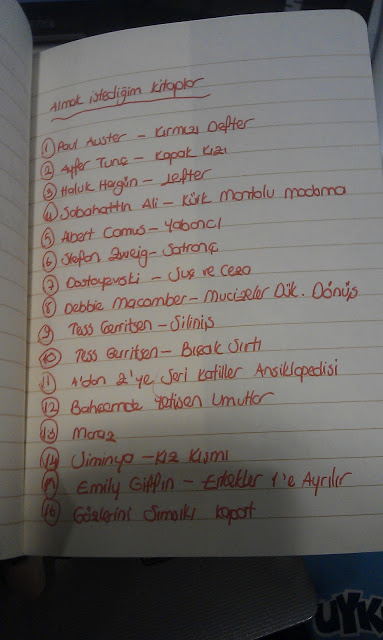 Almak istediğim kitaplar
1 Paul Auster - Kırmızı Defter
2 Ayfer Tunç - Kapak Kızı
3 Haluk Hergün - Lefter
4 Sabahattin Ali - Kürk Mantolu madonna
5 Albert Camus - Yabancı
6 Stefan Zweig - Satranç
7 Dostoyevski - Suç ve Ceza
8 Debbie Macomber - Mucizeler Dük. Dönüş
9 Tess Gerritsen - Siliniş
10 Tess Gerritsen - Bıçak Sırtı
11 A'dan Z'ye Seri Katiller Ansiklopedisi
12 Bahçemde Yetişen Umutlar
13 Maraz
14 - Kız Kısmı
Emily Giffin - Erkekler 1'e Ayrılır
16 Gözlerini Sımsıkı Kapat
UYK